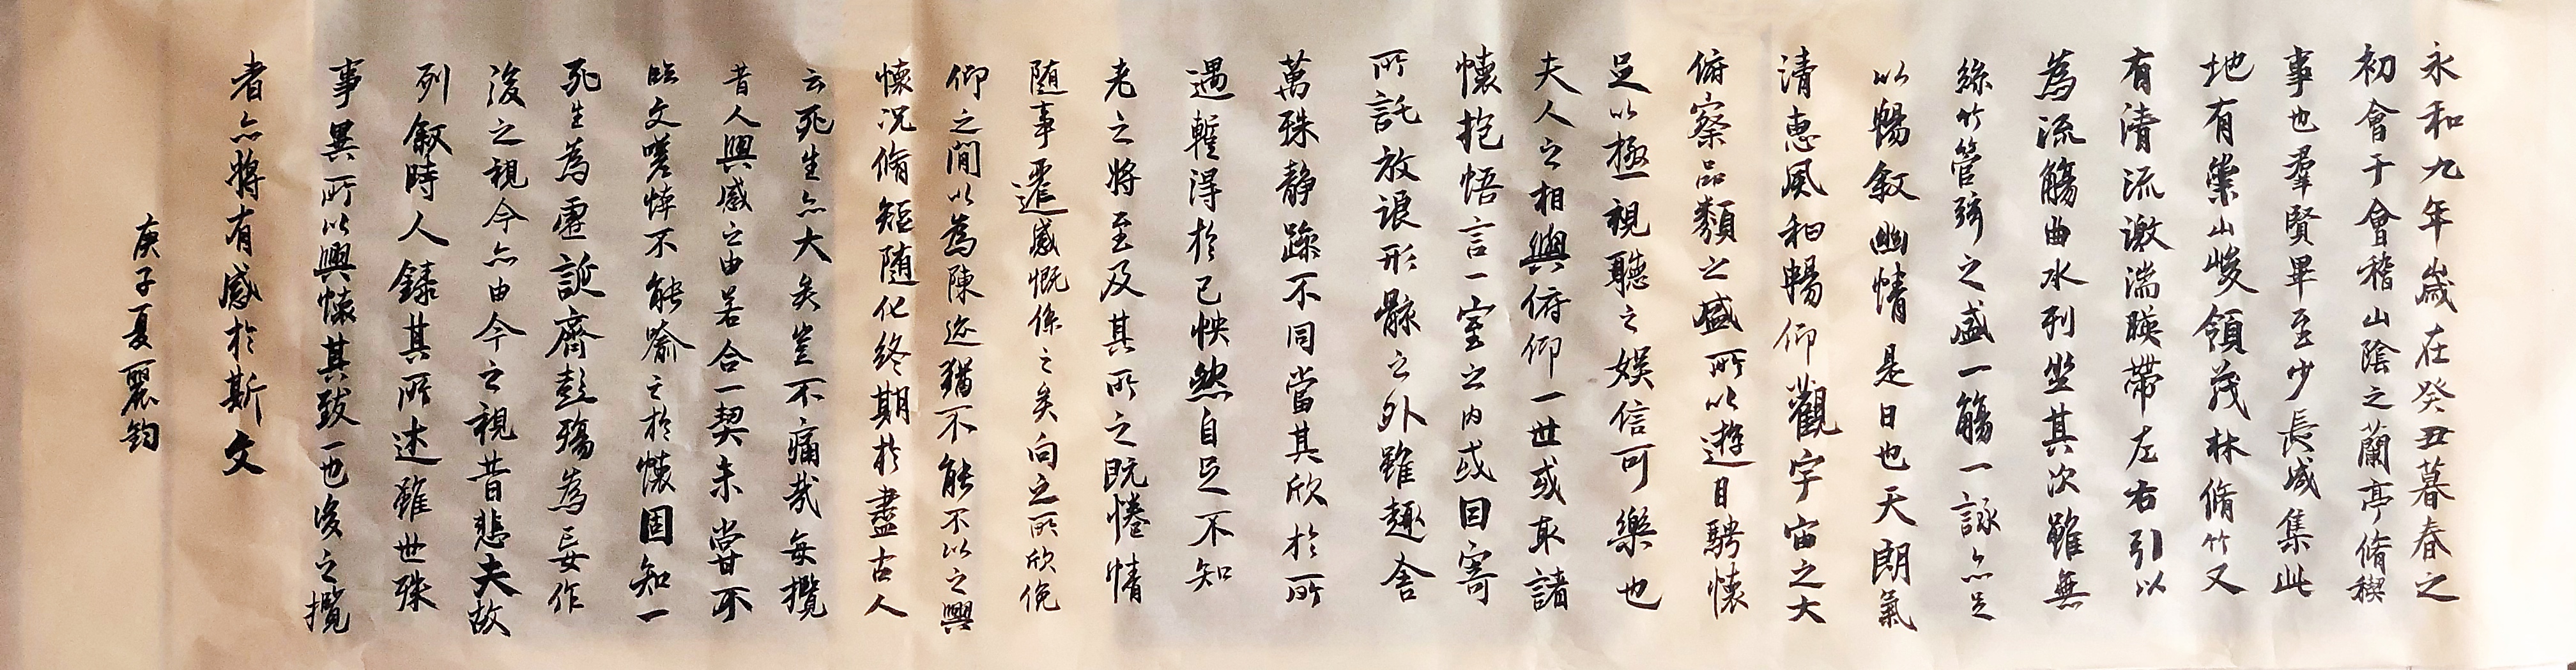 永和九年歲在癸丑暮春之
初會于會稽山陰之蘭亭脩稧
事也羣賢畢至少長咸集此
地有崇山峻領茂林脩竹又
有清流激湍暎帶左右引以
為流觴曲水列坐其次雖無
絲竹管弦之盛一觴一詠亦足
以暢叙幽情是日也天朗氣
清惠風和暢仰觀宇宙之大
俯察品類之盛所以遊目騁懷
足以極視聽之娛信可樂也
夫人之相與俯仰一世或取諸
懷抱悟言一室之内或因寄
所託放浪形骸之外雖趣舍
萬殊静躁不同當其欣於所
遇蹔得於己怏然自足不知
老之將至及其所之既惓情
隨事遷感慨係之矣向之所欣俛
仰之閒以為陳迹猶不能不以之興
懷況脩短隨化終期於盡古人
云死生亦大矣豈不痛哉每攬
昔人興感之由若合一契未嘗不
臨文嗟悼不能喻之於懷固知一
死生為虛誕齊彭殤為妄作
後之視今亦由今之視昔悲夫故
列叙時人錄其所述雖世殊
事異所以興懷其致一也後之攬
者亦將有感於斯文
庚子夏麗鈞